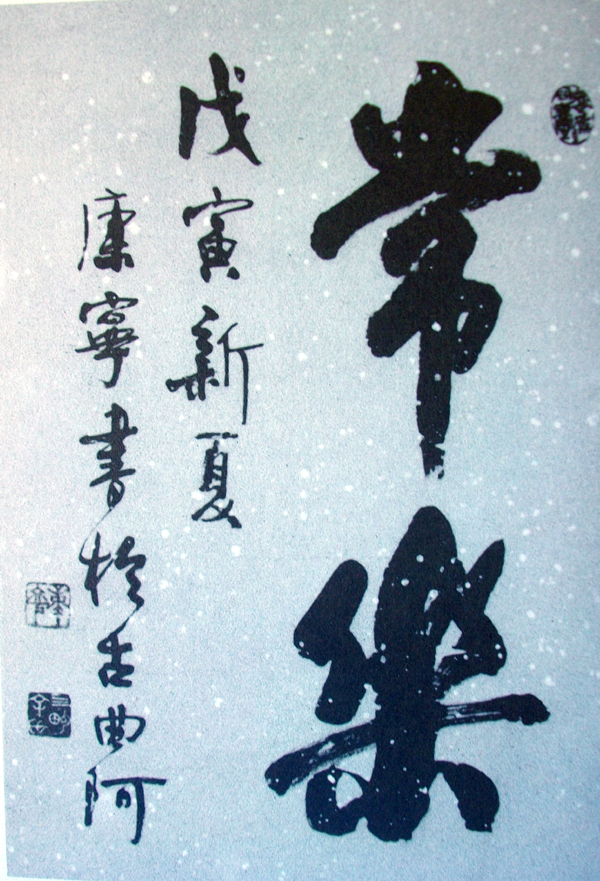 常樂
戊寅新夏
康寧書於古曲阿